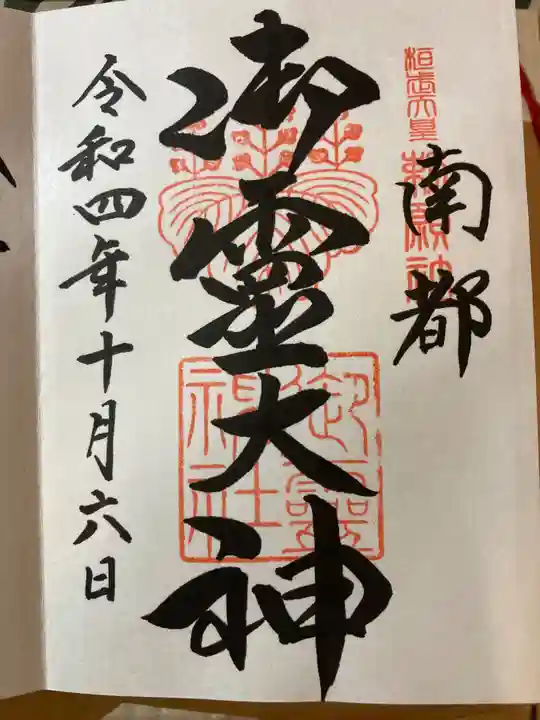 桓武天皇勅願神社
南都
御霊大神
御霊神社
令和四年十月六日